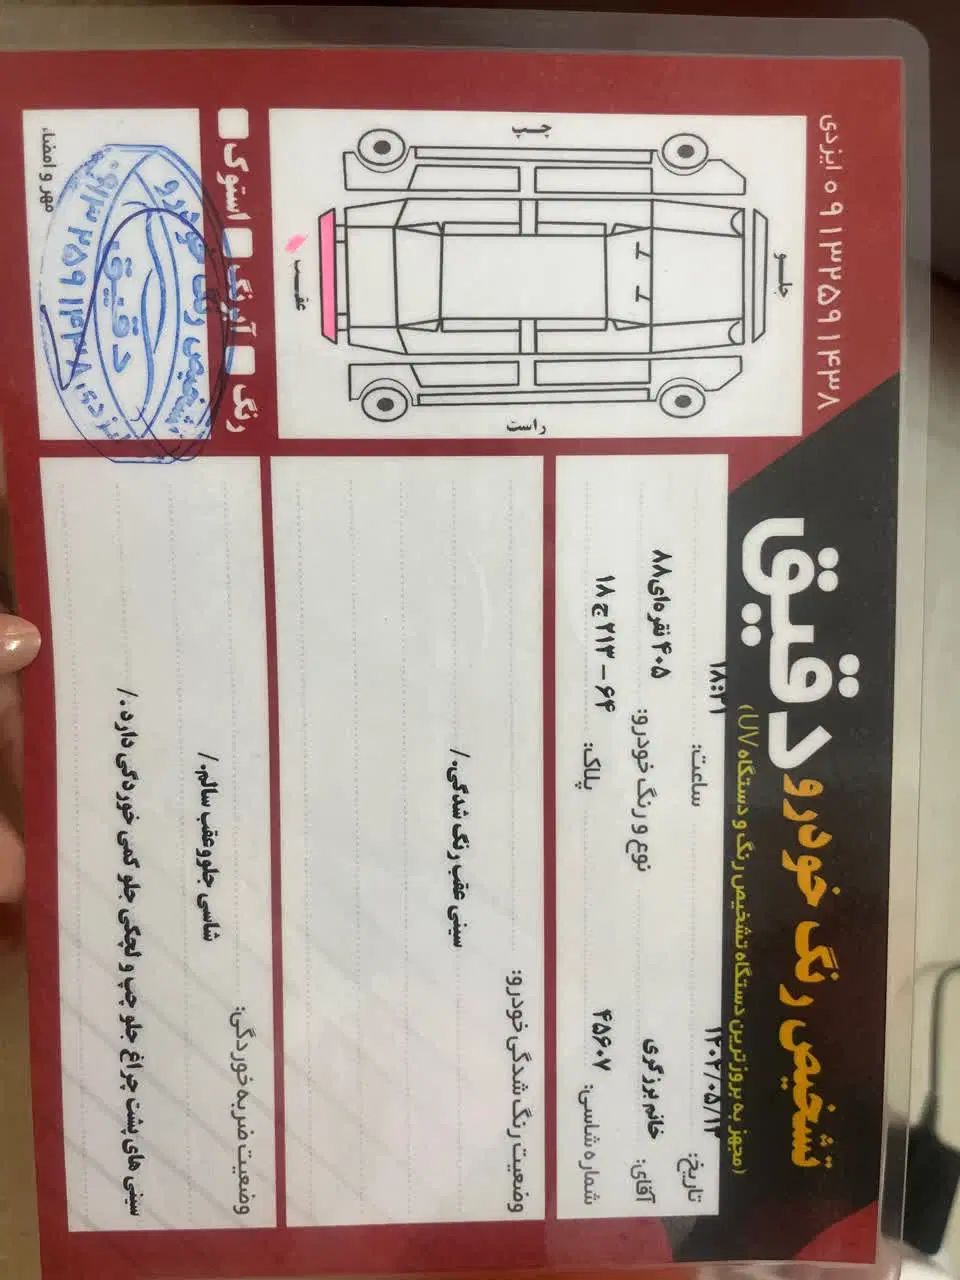 تشخیص رنگ خودرو دقیق
(مجهز به بروزترین دستگاه تشخیص رنگ و دستگاه UV)
۰۹۱۳۲۵۹۱۴۳۸ ایزدی
تاریخ: ۱۴۰۲/۰۵/۱۲ ساعت: ۱۸:۲۱
آقای: خانم برزگری نوع و رنگ خودرو: ۴۰۵ نقره‌ای ۸۸
شماره شاسی: ۴۵۶۰۷ پلاک: ۶۴ - ۲۱۳ ج ۱۸
وضعیت رنگ شدگی خودرو:
سینی عقب رنگ شدگی./
وضعیت ضربه خوردگی:
شاسی جلو و عقب سالم./
سینی های پشت چراغ جلو چپ و لچکی جلو کمی خوردگی دارد./
جلو
چپ
راست
عقب
رنگ
آبرنگ
استوک
مهر و امضاء
تشخیص رنگ خودرو
دقیق
ایزدی ۰۹۱۳۲۵۹۱۴۳۸